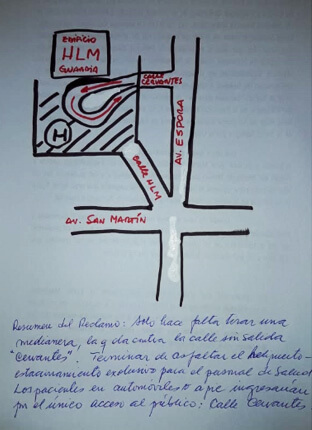 EDIFICIO
HLM
GUARDIA
CALLE
CERVANTES
H
AV. ESPORA
Calle HLM
AV. SAN MARTÍN
Resumen del Reclamo: Solo hace falta tirar una
medianera, la q da contra la calle sin salida
"Cervantes". Terminar de asfaltar el helipuerto-
estacionamiento exclusivo para el personal de Salud.
Los pacientes en automóviles o a pie ingresarían
por el único acceso al público: Calle Cervantes.